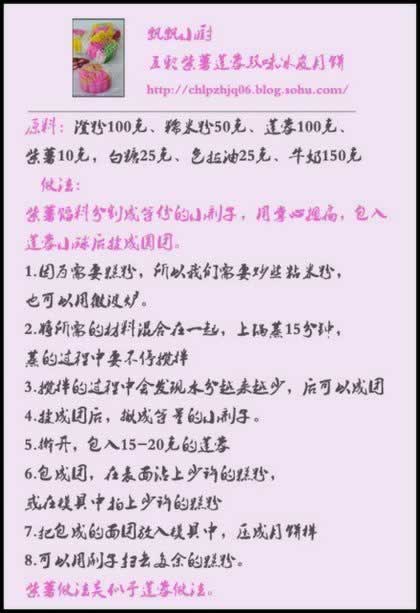 飘飘小厨
五彩紫薯莲蓉双味冰皮月饼
http://chlpzhjq06.blog.sohu.com/
原料：澄粉100克、糯米粉50克、莲蓉100克、
紫薯10克，白糖25克、色拉油25克、牛奶150克
做法：
紫薯馅料分割成等份的小剂子，用掌心搓高，包入
莲蓉小球后揉成圆团。
1.因为需要糕粉，所以我们需要炒些粘米粉，
也可以用微波炉。
2.将所需的材料混合在一起，上锅蒸15分钟，
蒸的过程中要不停搅拌
3.搅拌的过程中会发现水分越来越少，后可以成团
4.揉成团后，搓成等量的小剂子。
5.擀开，包入15-20克的莲蓉
6.包成团，在表面沾上少许的糕粉
或在模具中拍上少许的糕粉
7.把包成的面团放入模具中，压成月饼样
8.可以用刷子扫去多余的糕粉。
紫薯做法类似于莲蓉做法。